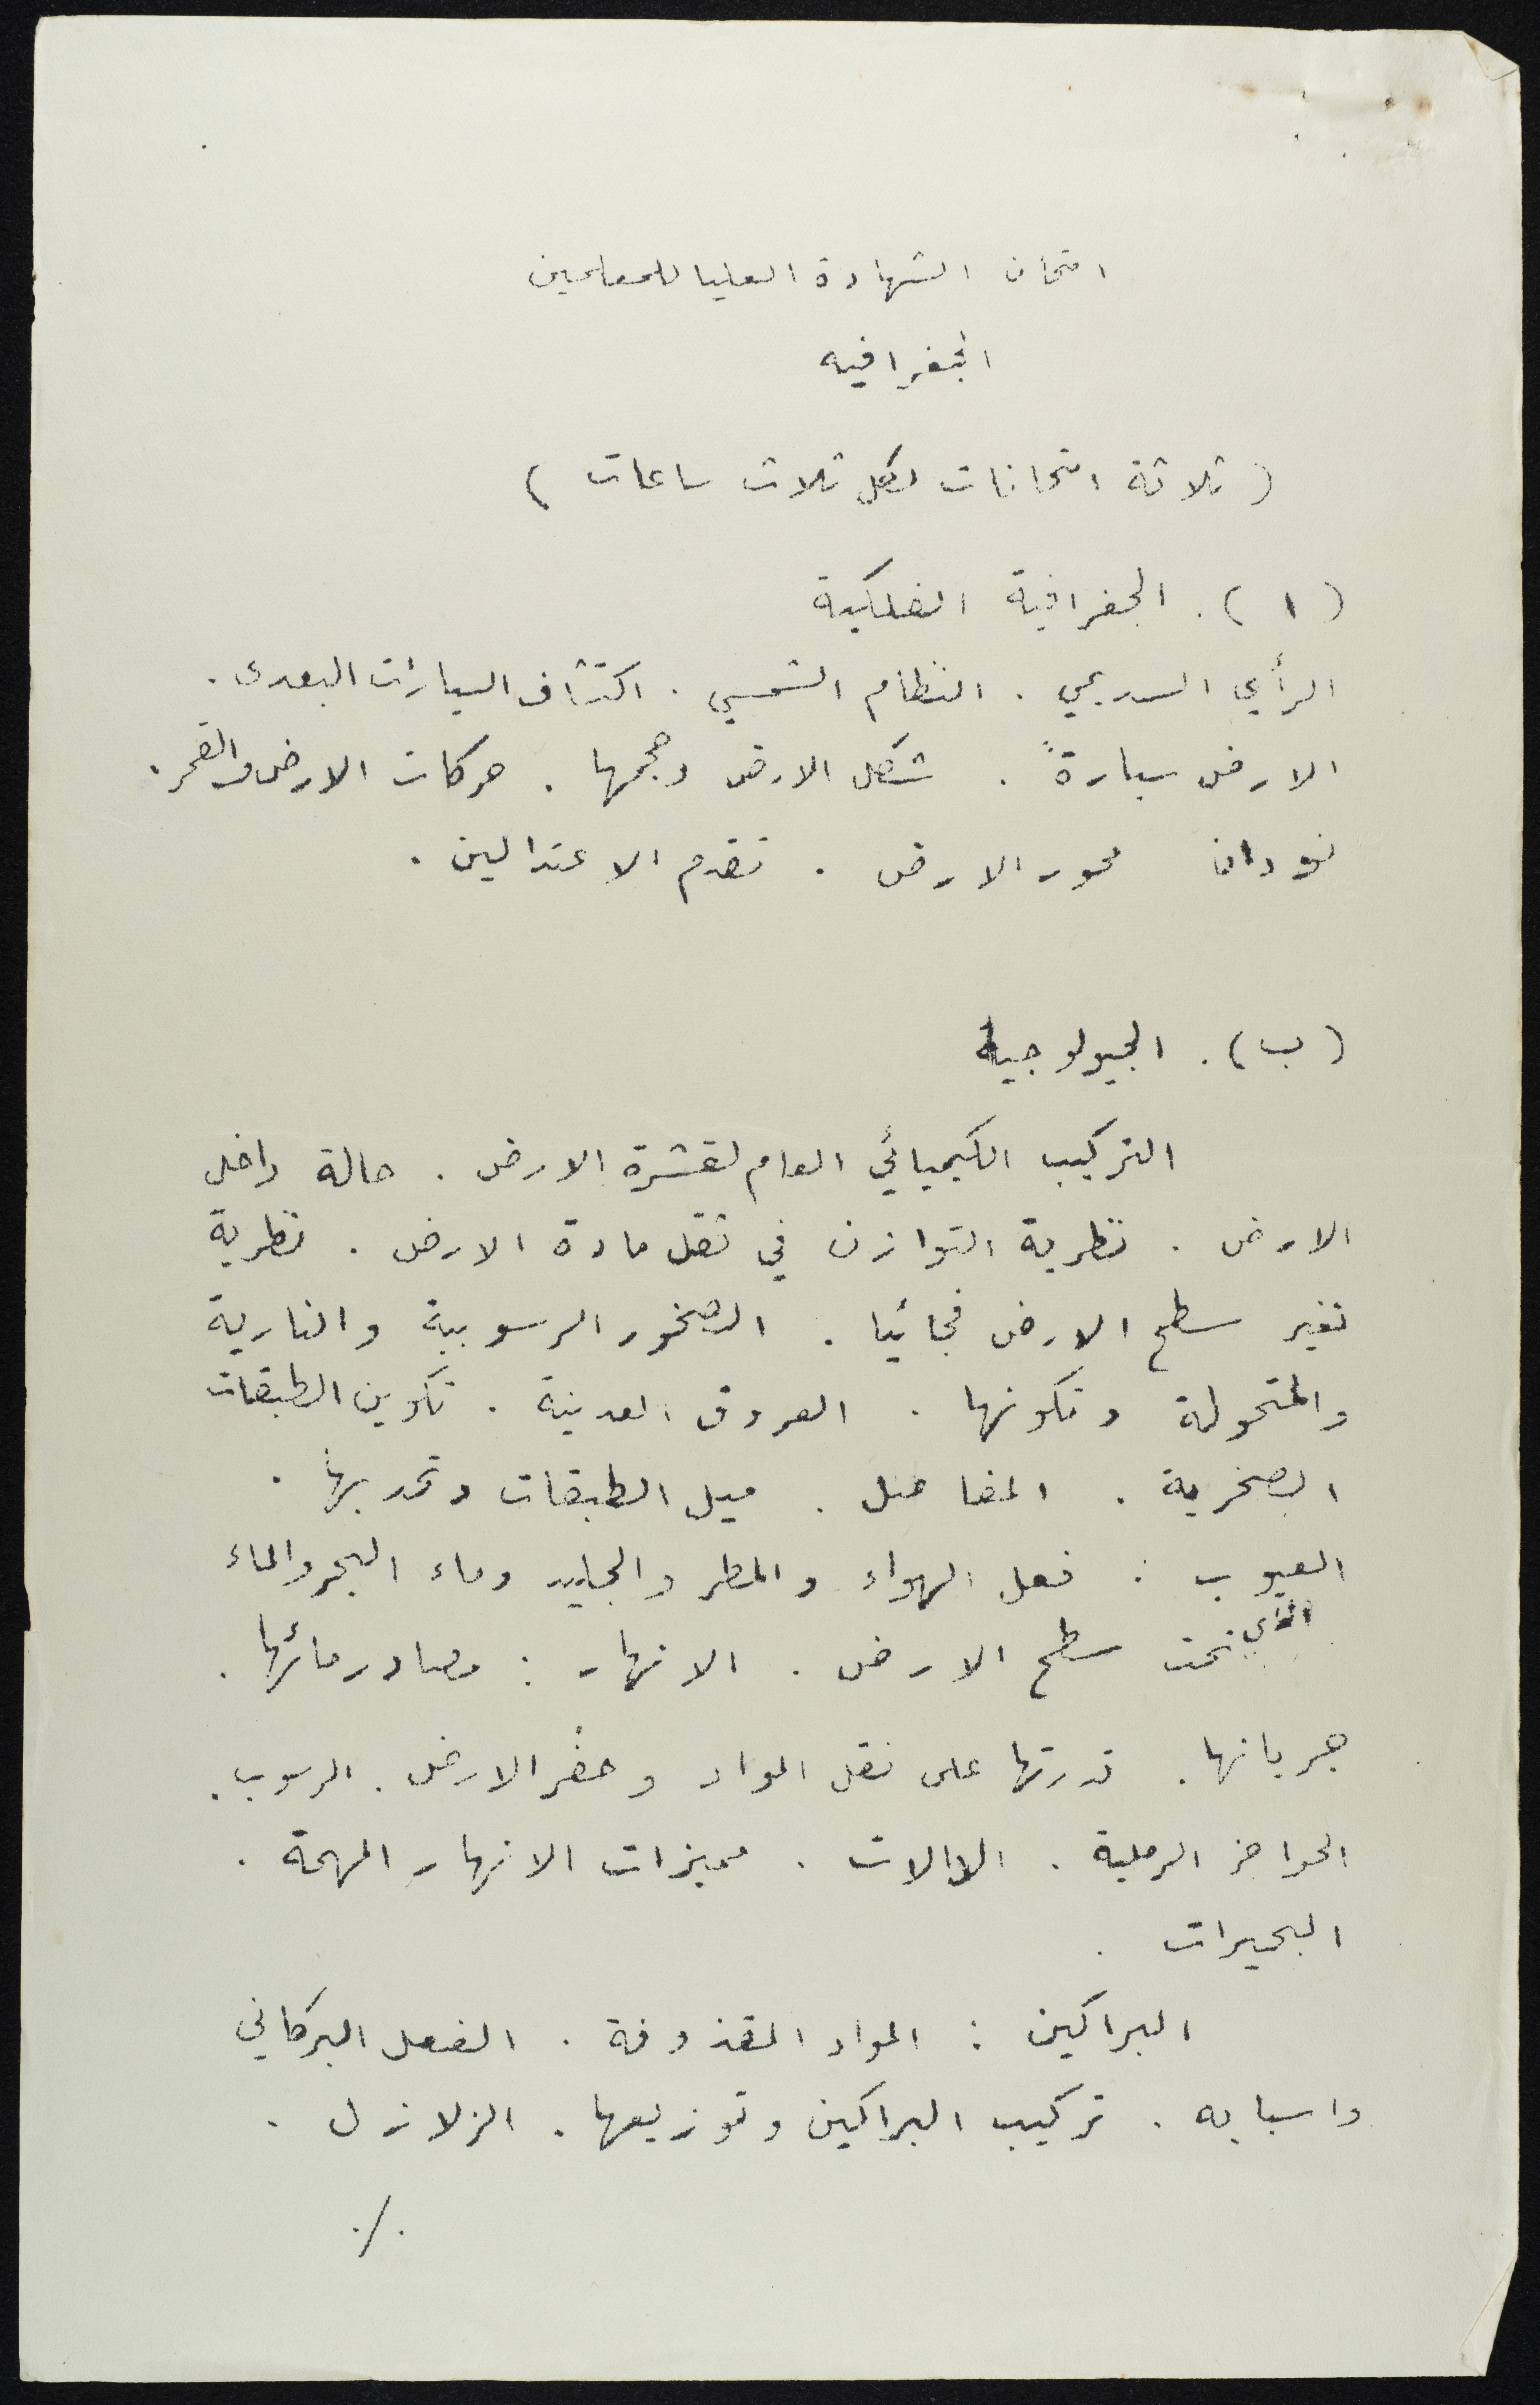 امتحان الشهادة العليا للمعلمين
الجغرافيه
( ثلاثة امتحانات لكل ثلاث ساعات )
( ا ) . الجغرافية الفلكية
الرأي السديمي . النظام الشمسي . اكتشاف السيارات البعدى .
الارض سيارةً . شكل الارض وحجمها . حركات الارض والقمر .
نودان محور الارض . تقدم الاعتدالين .
( ب ) . الجيولوجيا
التركيب الكيميائي العام لقشرة الارض . حالة داخل
الارض . نظرية التوازن في ثقل مادة الارض . نظرية
تغير سطح الارض فجائيا . الصخور الرسوبية والنارية
والمتحولة وتكونها . العروق المعدنية . تكوين الطبقات
الصخرية . المفاصل . ميل الطبقات وتحدبها .
العيوب : فعل الهواء والمطر والجليد وماء البحر والماء
الذي تحت سطح الارض . الانهار : مصادر مائها .
جريانها . قدرتها على نقل المواد وحفر الارض . الرسوب .
الحواجز الرملية . الدالات . مميزات الانهار المهمة .
البحيرات .
البراكين : المواد المقذوفة . الفعل البركاني
واسبابه . تركيب البراكين وتوزيعها . الزلازل .
./.